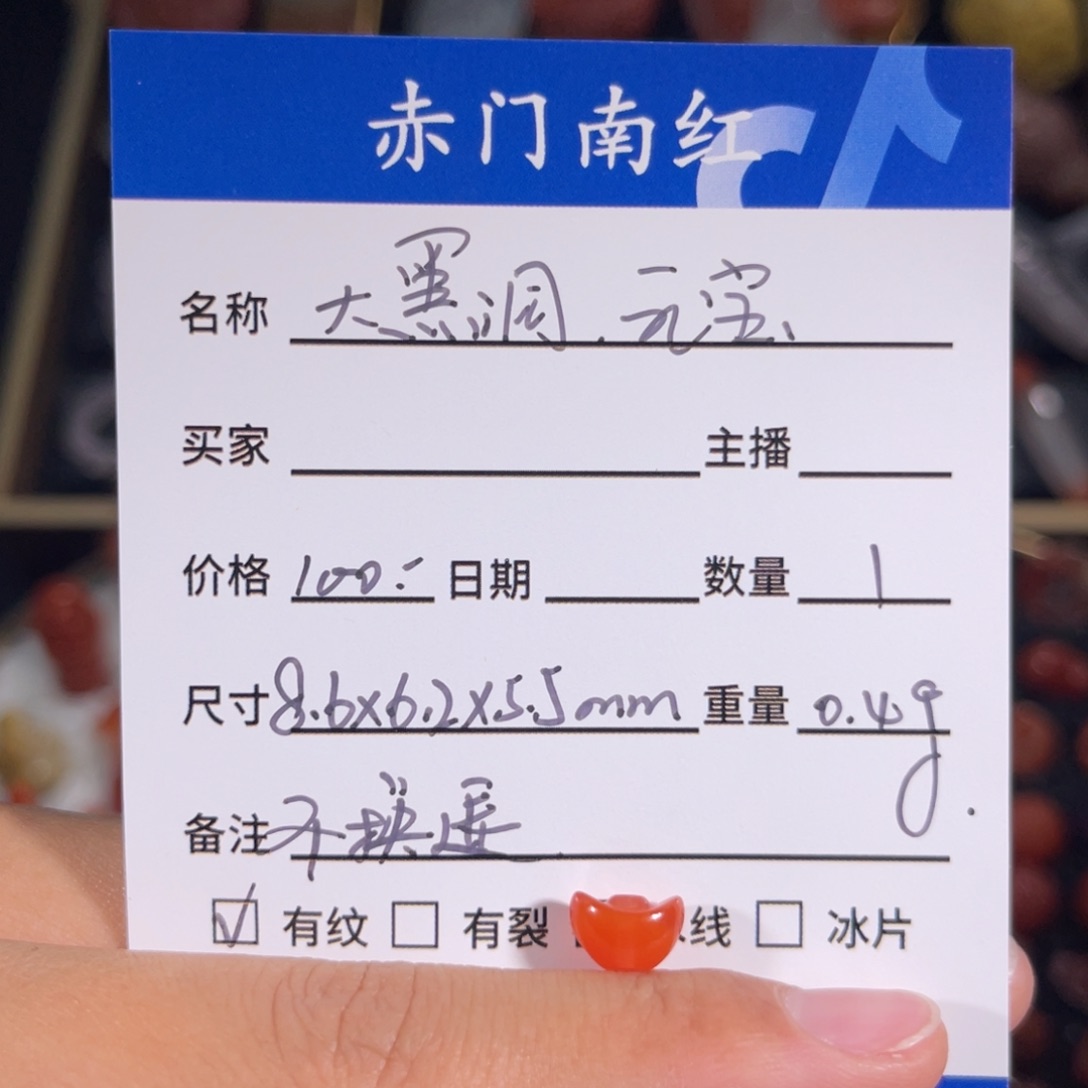 赤门南红
名称 大黑洞.元宝
买家 主播
价格 100.- 日期 数量 1
尺寸 8.6x6.2x5.5mm 重量 0.4g.
备注 不换退
有纹 有裂 线 冰片